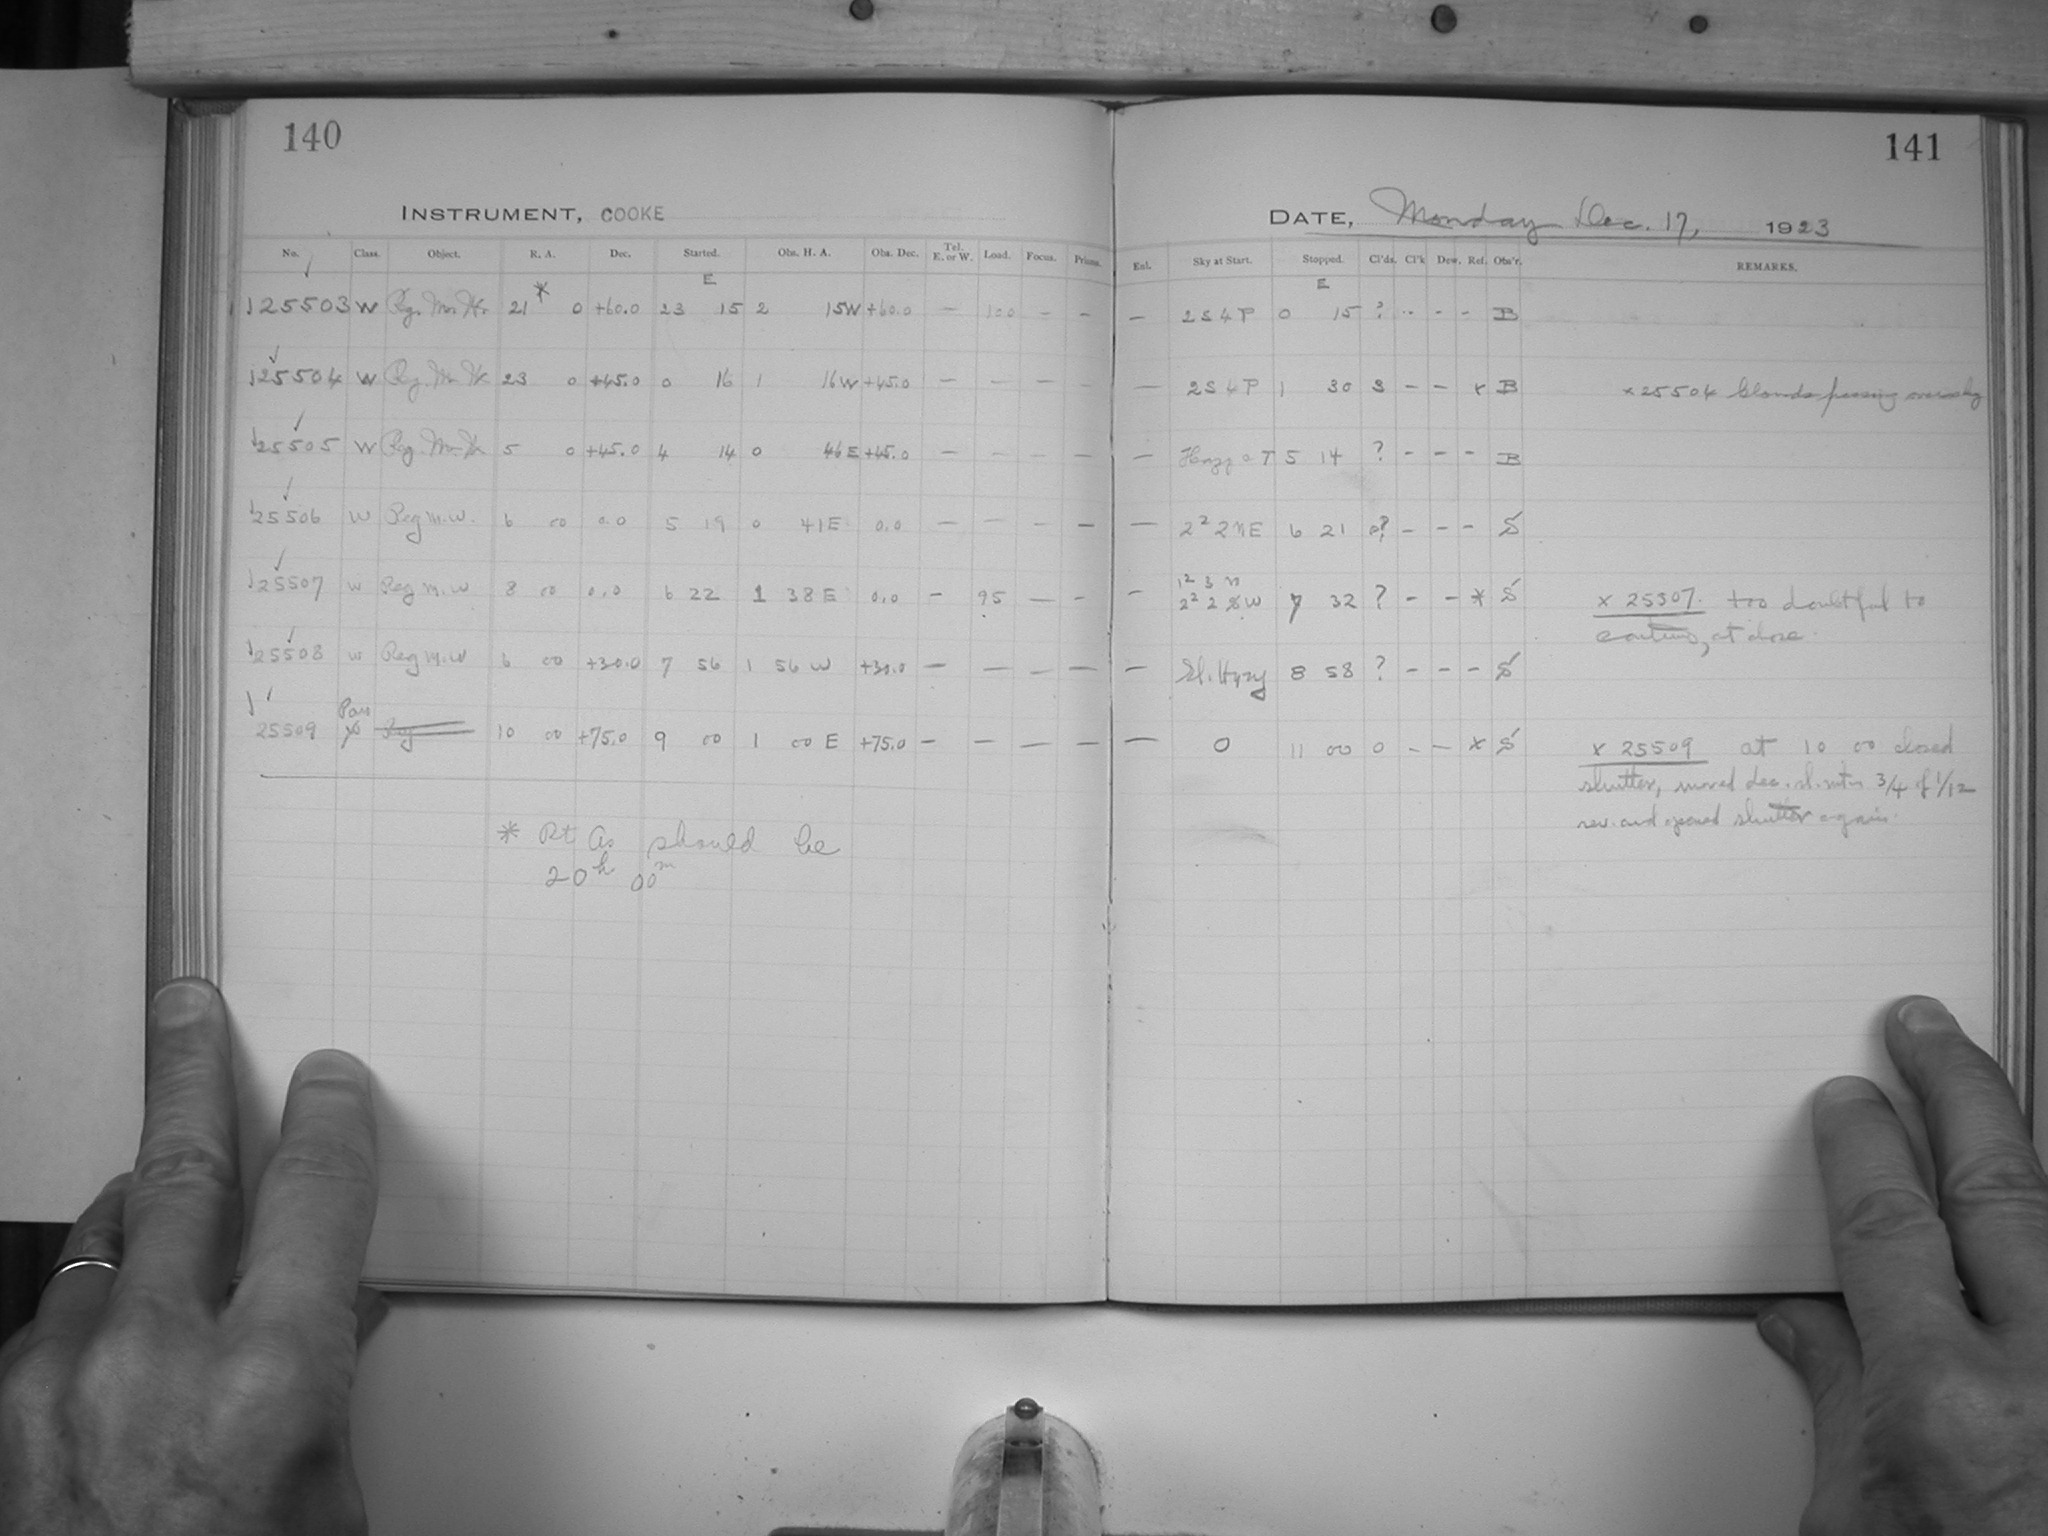 140
141
INSTRUMENT, COOKE
DATE, Monday Dec. 17, 1923
No. Class. Object. R. A. Dec. Started. Obs. H. A. Obs. Dec. Tel. E. or W. Load. Focus. Prisms. Enl. Sky at Start. Stopped. Cl'ds. Cl'k Dew. Ref. Obs'r. REMARKS.
E E
125503 W Reg. M. W. 21 * 0 +60.0 23 15 2 15W +60.0 — 100 - - — 2S4P 0 15 ? - - - B
125504 W Reg. M. W. 23 0 +45.0 0 16 1 16W +45.0 — — — — — 2S4P 1 30 3 - - x B x25504 Clouds passing over sky
125505 W Reg. M. W. 5 0 +45.0 4 14 0 46E +45.0 — — — — — 5 14 ? - - - B
125506 W Reg M.W. 6 00 0.0 5 19 0 41E 0.0 — — — — — 2² 2NE 6 21 0? - - - S
1² 3 N
125507 W Reg M.W 8 00 0.0 6 22 1 38E 0.0 — 95 — - — 2² 2 SW 7 32 ? - - * S x 25507. too doubtful to
continue, at close.
125508 W Reg M.W 6 00 +30.0 7 56 1 56 W +30.0 — — — — — Sl. Hazy 8 58 ? - - - S
Par
25509 Reg 10 00 +75.0 9 00 1 00 E +75.0 — — — — — 0 11 00 0 - - x S x 25509 at 10 00 closed
shutter, moved dec. sl. mtn 3/4 of 1/12
rev. and opened shutter again.
* Rt As should be
20h 00m